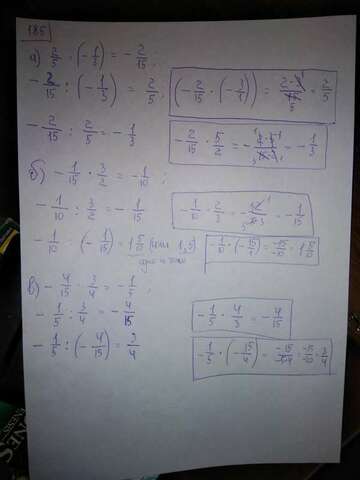 185
а) 2/5 · (-1/3) = -2/15;
-2/15 : (-1/3) = 2/5;
(-2/15 · (-3/1) = = 2/5
-2/15 : 2/5 = -1/3
-2/15 · 5/2 = - = -1/3
б) -1/15 · 3/2 = -1/10;
-1/10 : 3/2 = -1/15
-1/10 · 2/3 = - = -1/15
-1/10 : (-1/15) = 1 5/10 (или 1,5)
одно и тоже
-1/10 · (-15/1) = -15/-10 = 1 5/10
в) -4/15 · 3/4 = -1/5;
-1/5 : 3/4 = -4/15
-1/5 · 4/3 = -4/15
-1/5 : (-4/15) = 3/4
-1/5 · (-15/4) = = 3/4
NES